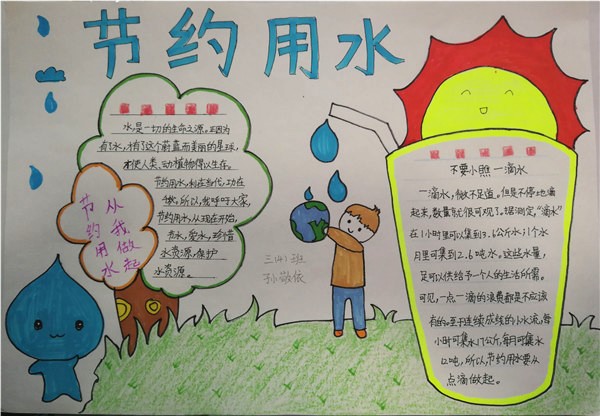 节约用水
水是一切的生命之源。正因为
有了水,才有了这个蔚蓝而美丽的星球,
才使人类、动植物得以生存。
节约用水,利在当代,功在
千秋。所以,我呼吁大家,
节约用水,从现在开始,
热水,爱水,珍惜
水资源,保护
水资源。
从我做起
节约用水
三(4)班
孙敬依
不要小瞧一滴水
一滴水,微不足道。但是不停地滴
起来,数量就很可观了。据测定,“滴水”
在1小时里可以集到3.6公斤水;1个水
月里可集到2.6吨水。这些水量,
足可以供给予一个人的生活所需。
可见,一点一滴的浪费都是不应该
有的。至于连续成线的小水流,每
小时可集水17公斤,每月可集水
12吨,所以,节约用水要从
点滴做起。